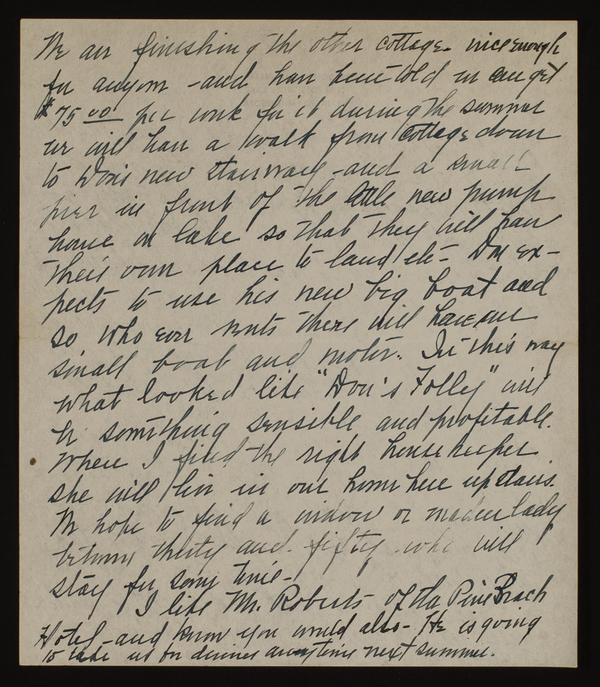 We are finishing the other cottage - nice enough
for anyone - and have been told we can get
$75 00 per week for it during the summer
we will have a walk from Cottage down
to Don's new stairway - and a small
pier in front of the little new pump
house on lake so that they will have
their own place to land etc - Don ex-
pects to use his new big boat and
so who ever rents there will have our
small boat and motor. In this way
what looked like "Don's Folley" will
be something sensible and profitable.
Where I find the right housekeeper
she will live in our home here upstairs.
We hope to find a widow or maiden lady
between thirty and fifty who will
stay for some time -
I like Mr. Roberts of the Pine Beach
Hotel - and know you would also - He is going
to take us for dinners anytime next summer.